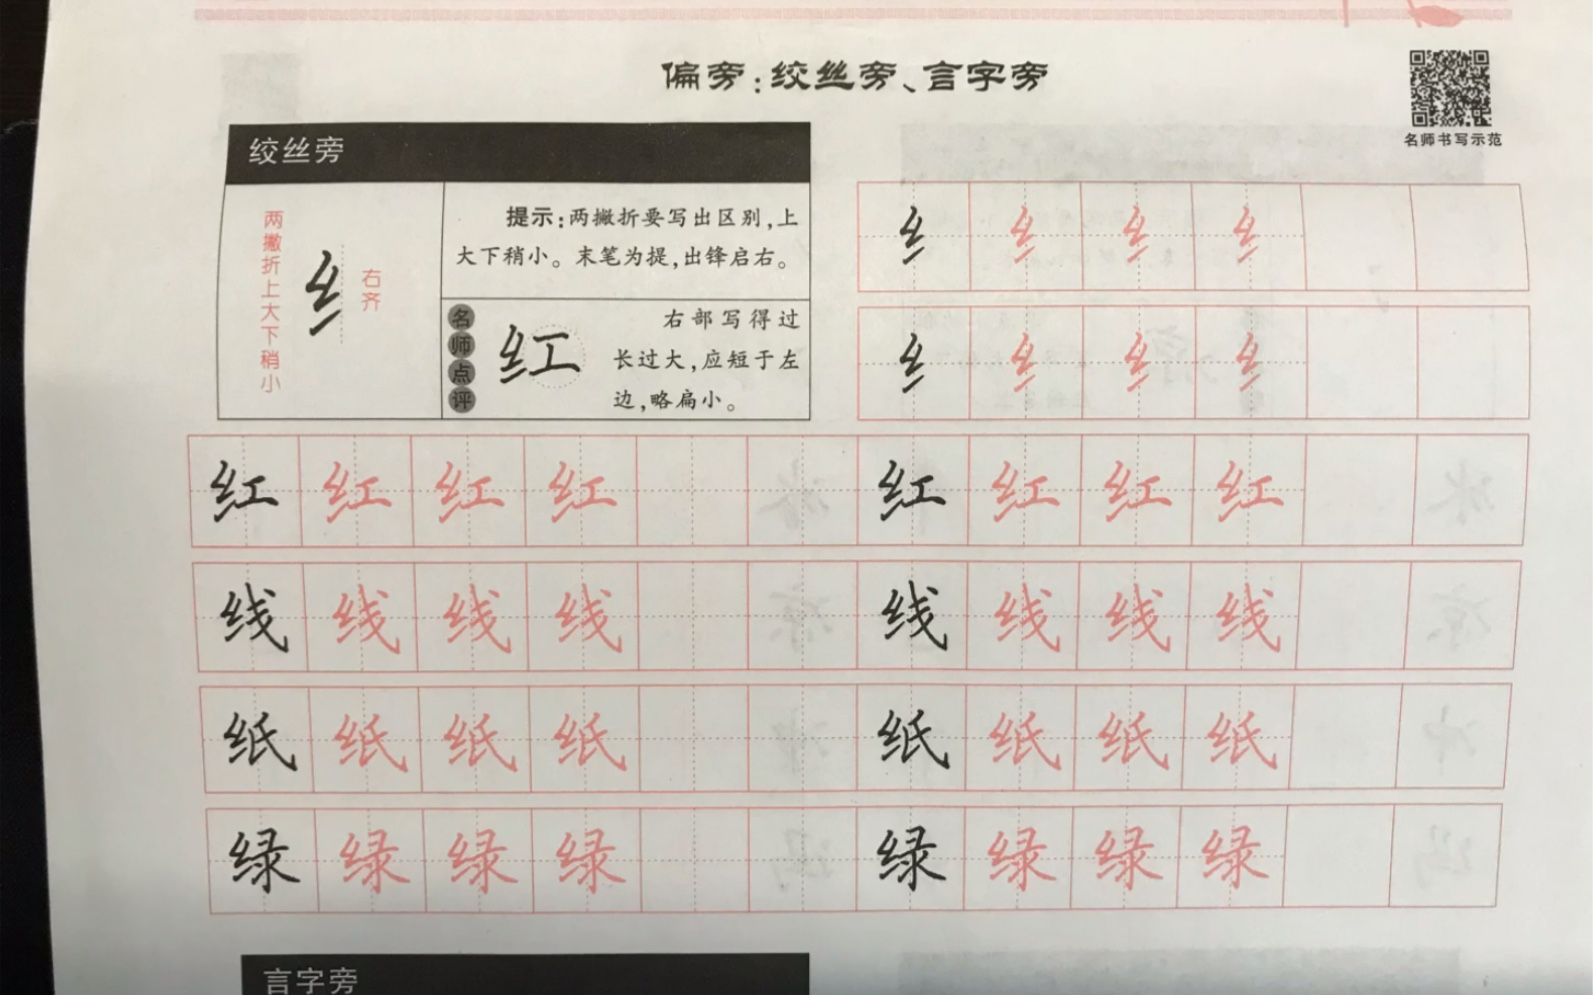 偏旁：绞丝旁、言字旁
名师书写示范
绞丝旁
两撇折上大下稍小
纟
右齐
提示：两撇折要写出区别，上
大下稍小。末笔为提，出锋启右。
名师点评
红
右部写得过
长过大，应短于左
边，略扁小。
纟 纟 纟 纟
纟 纟 纟 纟
红 红 红 红 红 红 红 红
线 线 线 线 线 线 线 线
纸 纸 纸 纸 纸 纸 纸 纸
绿 绿 绿 绿 绿 绿 绿 绿
言字旁